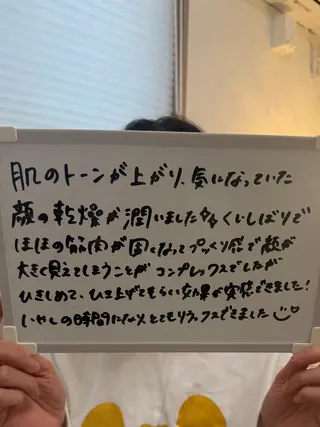 肌のトーンが上がり、気になっていた
顔の乾燥が潤いました
くいしばりで
ほほの筋肉が固くなってぷっくり顔で顔が
大きく見えてしまうことがコンプレックスでしたが
ひきしめて、ひき上げてもらい効果が実感できました!
いやしの時間になりとてもリラックスできました